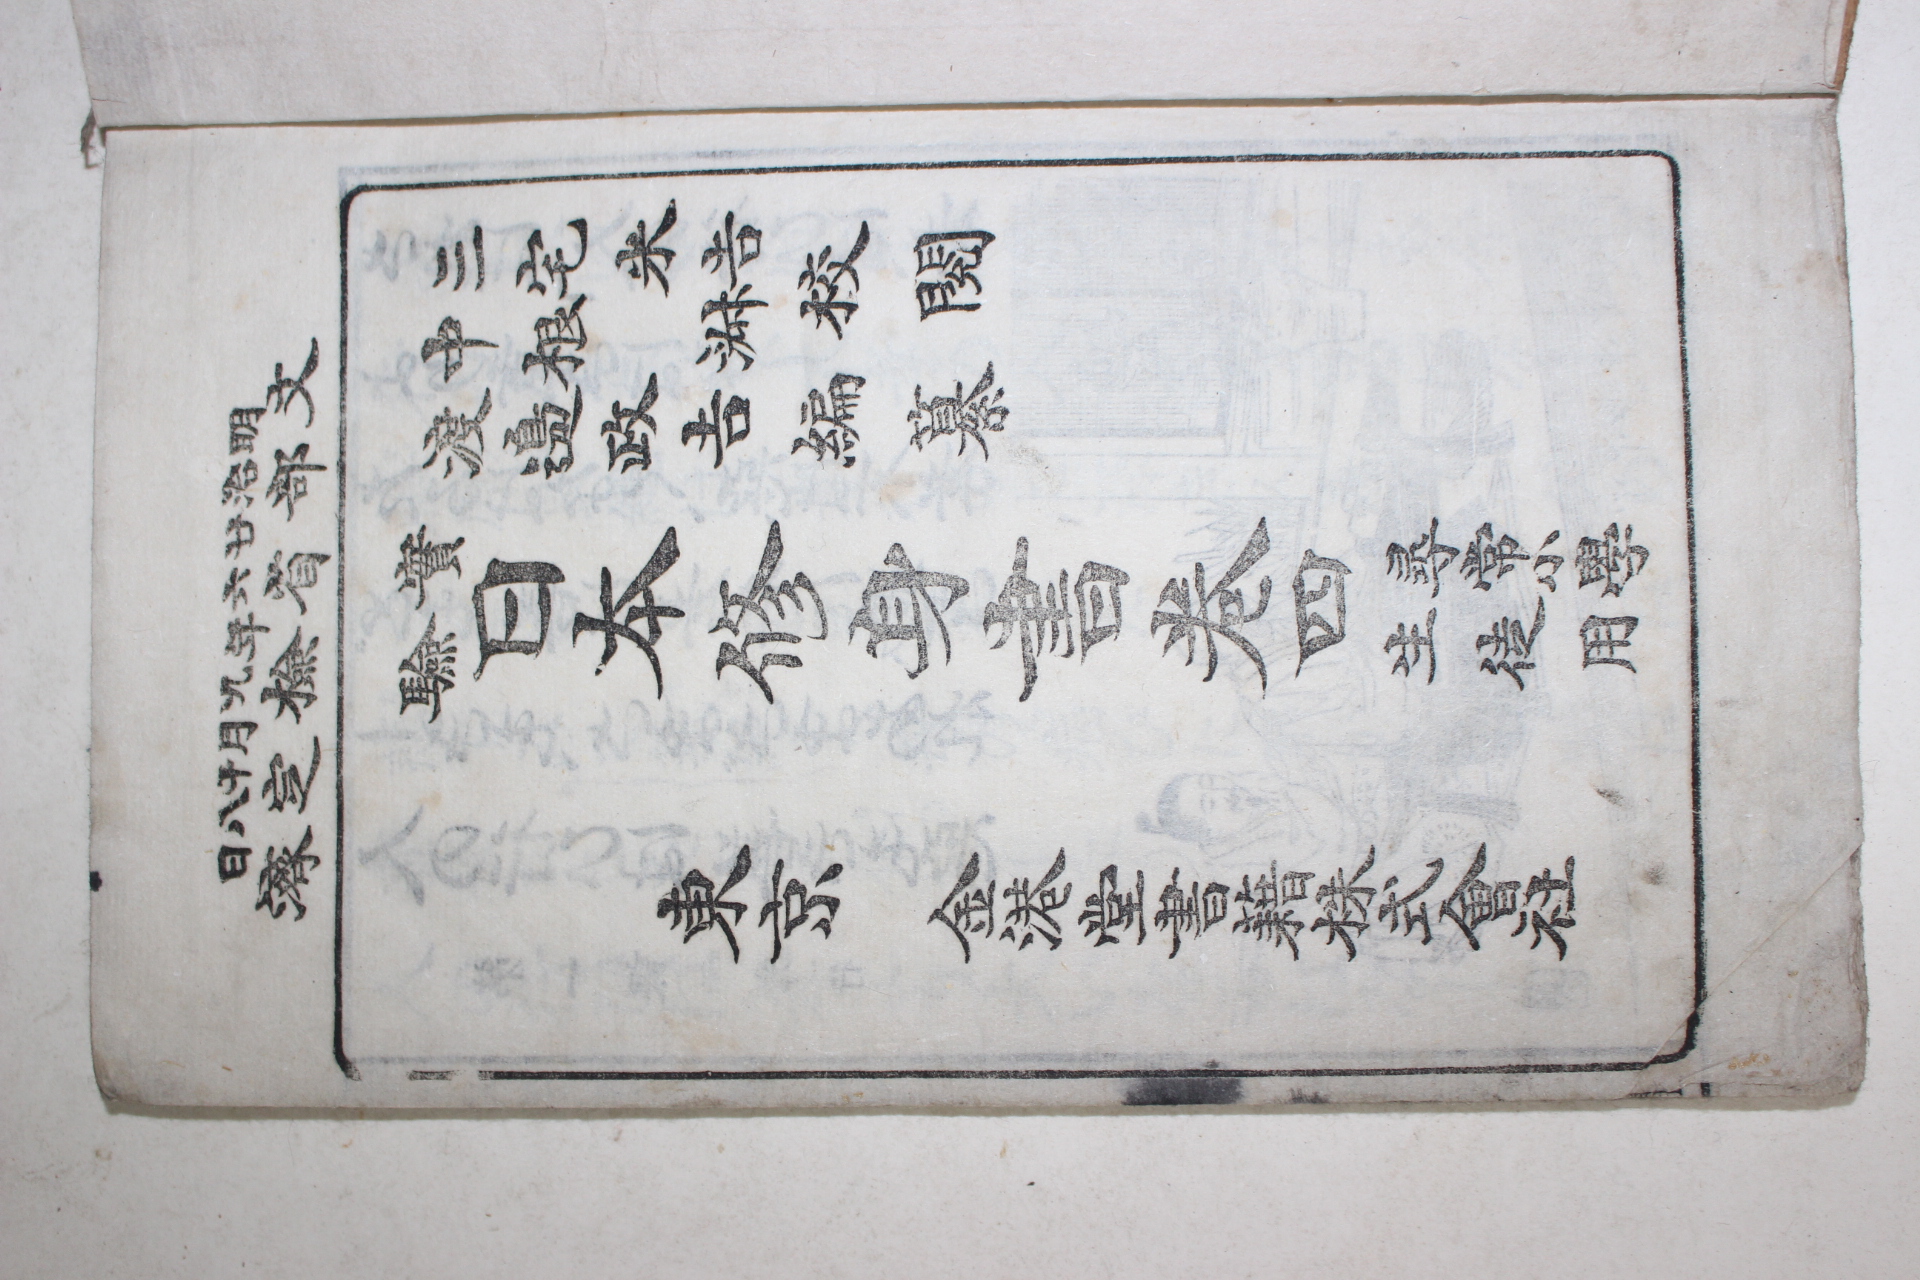 明治廿六年九月十八日
文部省檢定濟
三宅米吉
中根淑
校閱
渡邊政吉編纂
實驗
日本修身書卷四
尋常小學
生徒用
東京 金港堂書籍株式會社